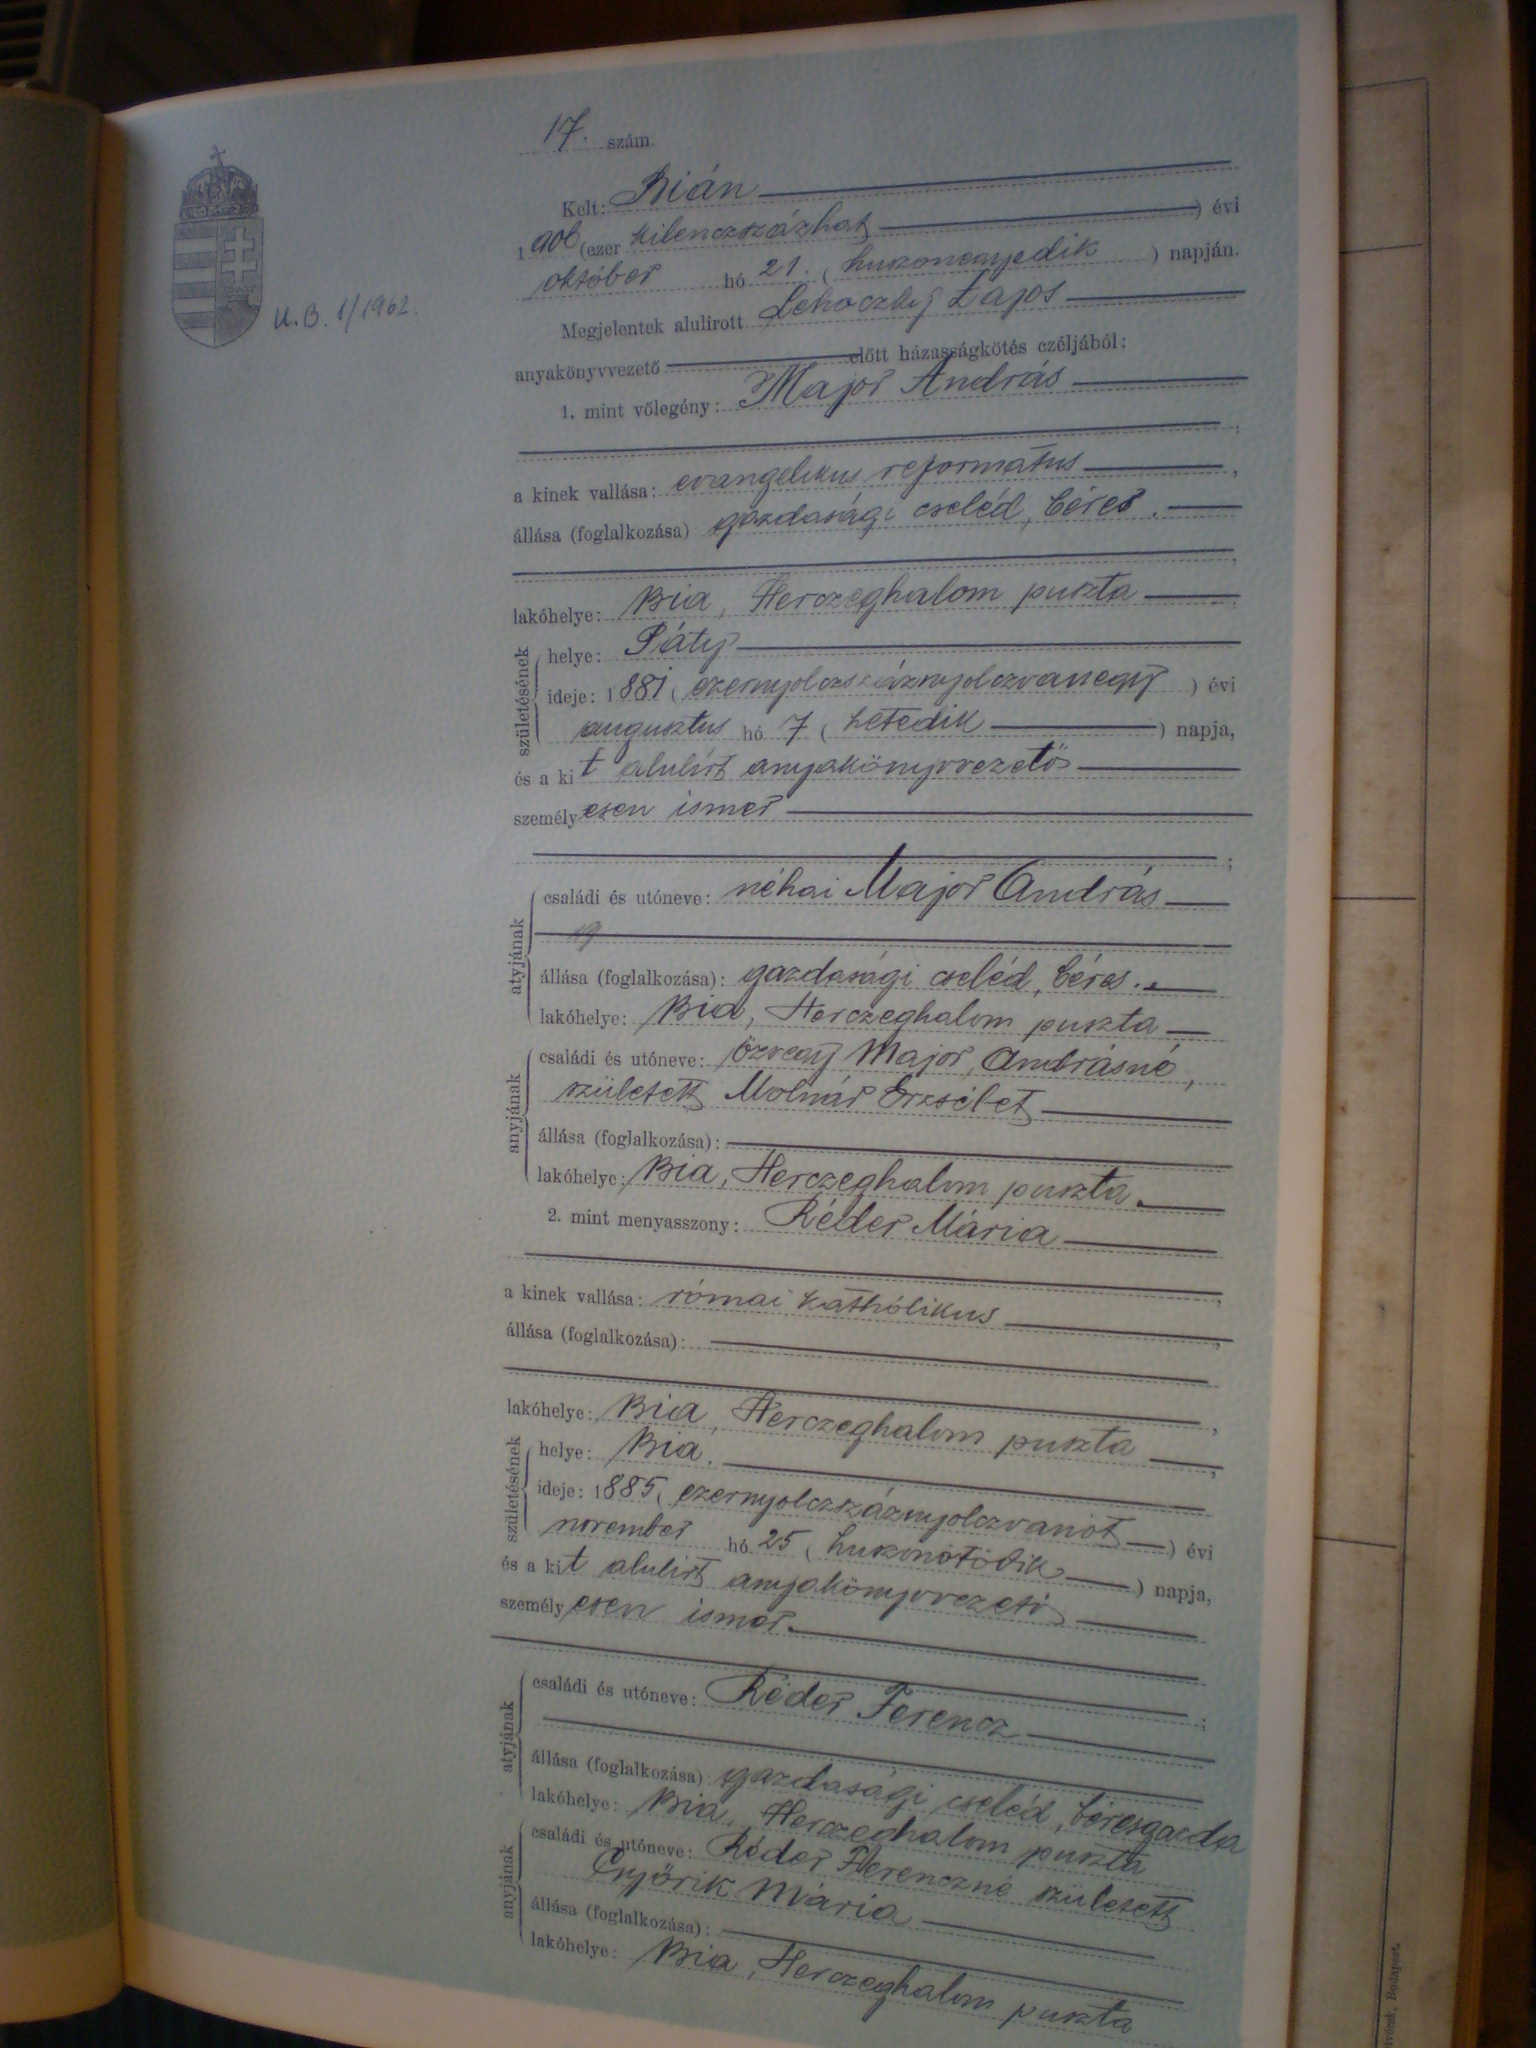 17. szám.
Kelt: Bián
1906 (ezer kilenczszázhat) évi
október hó 21. (huszonegyedik) napján.
U.B. 1/1962.
Megjelentek alulirott Lehoczky Lajos
anyakönyvvezető előtt házasságkötés czéljából:
1. mint vőlegény: Major András
a kinek vallása: evangelikus reformatus,
állása (foglalkozása) gazdasági cseléd, béres.
lakóhelye: Bia, Herczeghalom puszta
születésének
helye: Páty
ideje: 1881 (ezernyolczszáznyolczvanegy) évi
augusztus hó 7 (hetedik) napja,
és a kit alulírt anyakönyvvezető
személyesen ismer
;
atyjának
családi és utóneve: néhai Major András
állása (foglalkozása): gazdasági cseléd, béres.
lakóhelye: Bia, Herczeghalom puszta
anyjának
családi és utóneve: özvegy Major Andrásné,
született Molnár Erzsébet
állása (foglalkozása):
lakóhelye: Bia, Herczeghalom puszta.
2. mint menyasszony: Réder Mária
a kinek vallása: római katholikus,
állása (foglalkozása):
lakóhelye: Bia, Herczeghalom puszta
születésének
helye: Bia.
ideje: 1885 (ezernyolczszáznyolczvanöt) évi
november hó 25 (huszonötödik) napja,
és a kit alulírt anyakönyvvezető
személyesen ismer.
;
atyjának
családi és utóneve: Réder Ferencz
állása (foglalkozása): gazdasági cseléd, béresgazda
lakóhelye: Bia, Herczeghalom puszta
anyjának
családi és utóneve: Réder Ferenczné született
Mária
állása (foglalkozása):
lakóhelye: Bia, Herczeghalom puszta
Budapest.